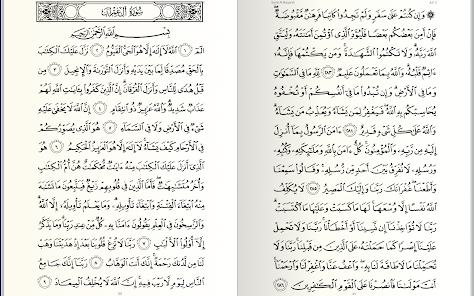 ۞ وَإِن كُنتُمْ عَلَىٰ سَفَرٍ وَلَمْ تَجِدُوا۟ كَاتِبًا فَرِهَـٰنٌ مَّقْبُوضَةٌ
فَإِنْ أَمِنَ بَعْضُكُم بَعْضًا فَلْيُؤَدِّ ٱلَّذِى ٱؤْتُمِنَ أَمَـٰنَتَهُۥ وَلْيَتَّقِ
ٱللَّهَ رَبَّهُۥ وَلَا تَكْتُمُوا۟ ٱلشَّهَـٰدَةَ وَمَن يَكْتُمْهَا فَإِنَّهُۥٓ
ءَاثِمٌ قَلْبُهُۥ وَٱللَّهُ بِمَا تَعْمَلُونَ عَلِيمٌ ٢٨٣ لِّلَّهِ مَا فِى ٱلسَّمَـٰوَٰتِ
وَمَا فِى ٱلْأَرْضِ وَإِن تُبْدُوا۟ مَا فِىٓ أَنفُسِكُمْ أَوْ تُخْفُوهُ
يُحَاسِبْكُم بِهِ ٱللَّهُ فَيَغْفِرُ لِمَن يَشَآءُ وَيُعَذِّبُ مَن يَشَآءُ
وَٱللَّهُ عَلَىٰ كُلِّ شَىْءٍ قَدِيرٌ ٢٨٤ ءَامَنَ ٱلرَّسُولُ بِمَآ أُنزِلَ
إِلَيْهِ مِن رَّبِّهِۦ وَٱلْمُؤْمِنُونَ كُلٌّ ءَامَنَ بِٱللَّهِ وَمَلَـٰٓئِكَتِهِۦ وَكُتُبِهِۦ
وَرُسُلِهِۦ لَا نُفَرِّقُ بَيْنَ أَحَدٍ مِّن رُّسُلِهِۦ وَقَالُوا۟ سَمِعْنَا
وَأَطَعْنَا غُفْرَانَكَ رَبَّنَا وَإِلَيْكَ ٱلْمَصِيرُ ٢٨٥ لَا يُكَلِّفُ
ٱللَّهُ نَفْسًا إِلَّا وُسْعَهَا لَهَا مَا كَسَبَتْ وَعَلَيْهَا مَا ٱكْتَسَبَتْ
رَبَّنَا لَا تُؤَاخِذْنَآ إِن نَّسِينَآ أَوْ أَخْطَأْنَا رَبَّنَا وَلَا تَحْمِلْ
عَلَيْنَآ إِصْرًا كَمَا حَمَلْتَهُۥ عَلَى ٱلَّذِينَ مِن قَبْلِنَا رَبَّنَا وَلَا
تُحَمِّلْنَا مَا لَا طَاقَةَ لَنَا بِهِۦ وَٱعْفُ عَنَّا وَٱغْفِرْ لَنَا وَٱرْحَمْنَآ
أَنتَ مَوْلَىٰنَا فَٱنصُرْنَا عَلَى ٱلْقَوْمِ ٱلْكَـٰفِرِينَ ٢٨٦
سُورَةُ آلِ عِمْرَانَ
بِسْمِ ٱللَّهِ ٱلرَّحْمَـٰنِ ٱلرَّحِيمِ
الٓمٓ ١ ٱللَّهُ لَآ إِلَـٰهَ إِلَّا هُوَ ٱلْحَىُّ ٱلْقَيُّومُ ٢ نَزَّلَ عَلَيْكَ ٱلْكِتَـٰبَ
بِٱلْحَقِّ مُصَدِّقًا لِّمَا بَيْنَ يَدَيْهِ وَأَنزَلَ ٱلتَّوْرَىٰةَ وَٱلْإِنجِيلَ ٣ مِن
قَبْلُ هُدًى لِّلنَّاسِ وَأَنزَلَ ٱلْفُرْقَانَ إِنَّ ٱلَّذِينَ كَفَرُوا۟ بِـَٔايَـٰتِ ٱللَّهِ لَهُمْ
عَذَابٌ شَدِيدٌ وَٱللَّهُ عَزِيزٌ ذُو ٱنتِقَامٍ ٤ إِنَّ ٱللَّهَ لَا يَخْفَىٰ عَلَيْهِ
شَىْءٌ فِى ٱلْأَرْضِ وَلَا فِى ٱلسَّمَآءِ ٥ هُوَ ٱلَّذِى يُصَوِّرُكُمْ
فِى ٱلْأَرْحَامِ كَيْفَ يَشَآءُ لَآ إِلَـٰهَ إِلَّا هُوَ ٱلْعَزِيزُ ٱلْحَكِيمُ ٦ هُوَ
ٱلَّذِىٓ أَنزَلَ عَلَيْكَ ٱلْكِتَـٰبَ مِنْهُ ءَايَـٰتٌ مُّحْكَمَـٰتٌ هُنَّ أُمُّ ٱلْكِتَـٰبِ
وَأُخَرُ مُتَشَـٰبِهَـٰتٌ فَأَمَّا ٱلَّذِينَ فِى قُلُوبِهِمْ زَيْغٌ فَيَتَّبِعُونَ مَا تَشَـٰبَهَ
مِنْهُ ٱبْتِغَآءَ ٱلْفِتْنَةِ وَٱبْتِغَآءَ تَأْوِيلِهِۦ وَمَا يَعْلَمُ تَأْوِيلَهُۥٓ إِلَّا ٱللَّهُ
وَٱلرَّٰسِخُونَ فِى ٱلْعِلْمِ يَقُولُونَ ءَامَنَّا بِهِۦ كُلٌّ مِّنْ عِندِ رَبِّنَا وَمَا يَذَّكَّرُ
إِلَّآ أُو۟لُوا۟ ٱلْأَلْبَـٰبِ ٧ رَبَّنَا لَا تُزِغْ قُلُوبَنَا بَعْدَ إِذْ هَدَيْتَنَا وَهَبْ
لَنَا مِن لَّدُنكَ رَحْمَةً إِنَّكَ أَنتَ ٱلْوَهَّابُ ٨ رَبَّنَآ إِنَّكَ جَامِعُ
ٱلنَّاسِ لِيَوْمٍ لَّا رَيْبَ فِيهِ إِنَّ ٱللَّهَ لَا يُخْلِفُ ٱلْمِيعَادَ ٩